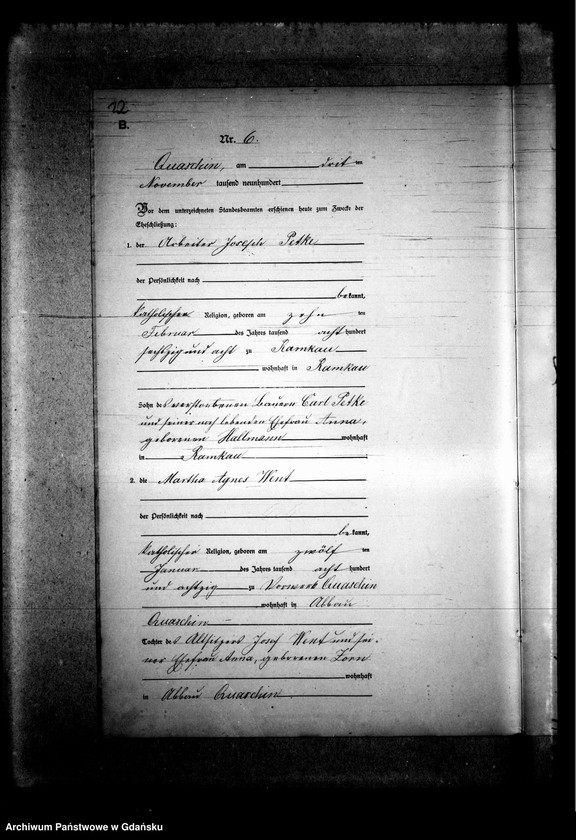 12
B.
Nr. 6.
Quaschin, am drit ten
November tausend neunhundert
Vor dem unterzeichneten Standesbeamten erschienen heute zum Zwecke der
Eheschließung:
1. der Arbeiter Joseph Petke
der Persönlichkeit nach
be kannt,
katholischer Religion, geboren am zehn ten
Februar des Jahres tausend acht hundert
sechzig und acht zu Ramkau
wohnhaft in Ramkau
Sohn des verstorbenen Bauern Carl Petke
und seiner noch lebenden Ehefrau Anna,
geborenen Hallmann wohnhaft
in Ramkau
2. die Martha Agnes Went
der Persönlichkeit nach
be kannt,
katholischer Religion, geboren am zwölf ten
Januar des Jahres tausend acht hundert
und achtzig zu Vorwerk Quaschin
wohnhaft in Abbau
Quaschin
Tochter des Altsitzers Josef Went und sei-
ner Ehefrau Anna, geborenen Zorn
wohnhaft
in Abbau Quaschin
Archiwum Państwowe w Gdańsku